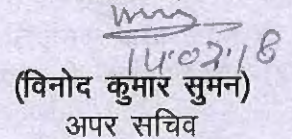 14.02.18
(विनोद कुमार सुमन)
अपर सचिव